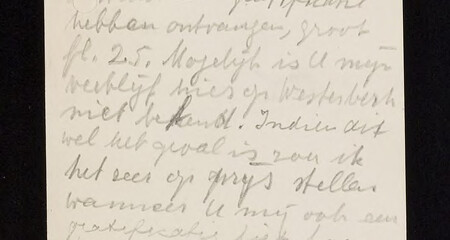 gratificatie
hebben ontvangen, groot
fl. 25. Mogelijk is U mijn
verblijf hier op Westerbork
niet bekend. Indien dit
wel het geval is zou ik
het zeer op prijs stellen
wanneer U mij ook een
gratificatie